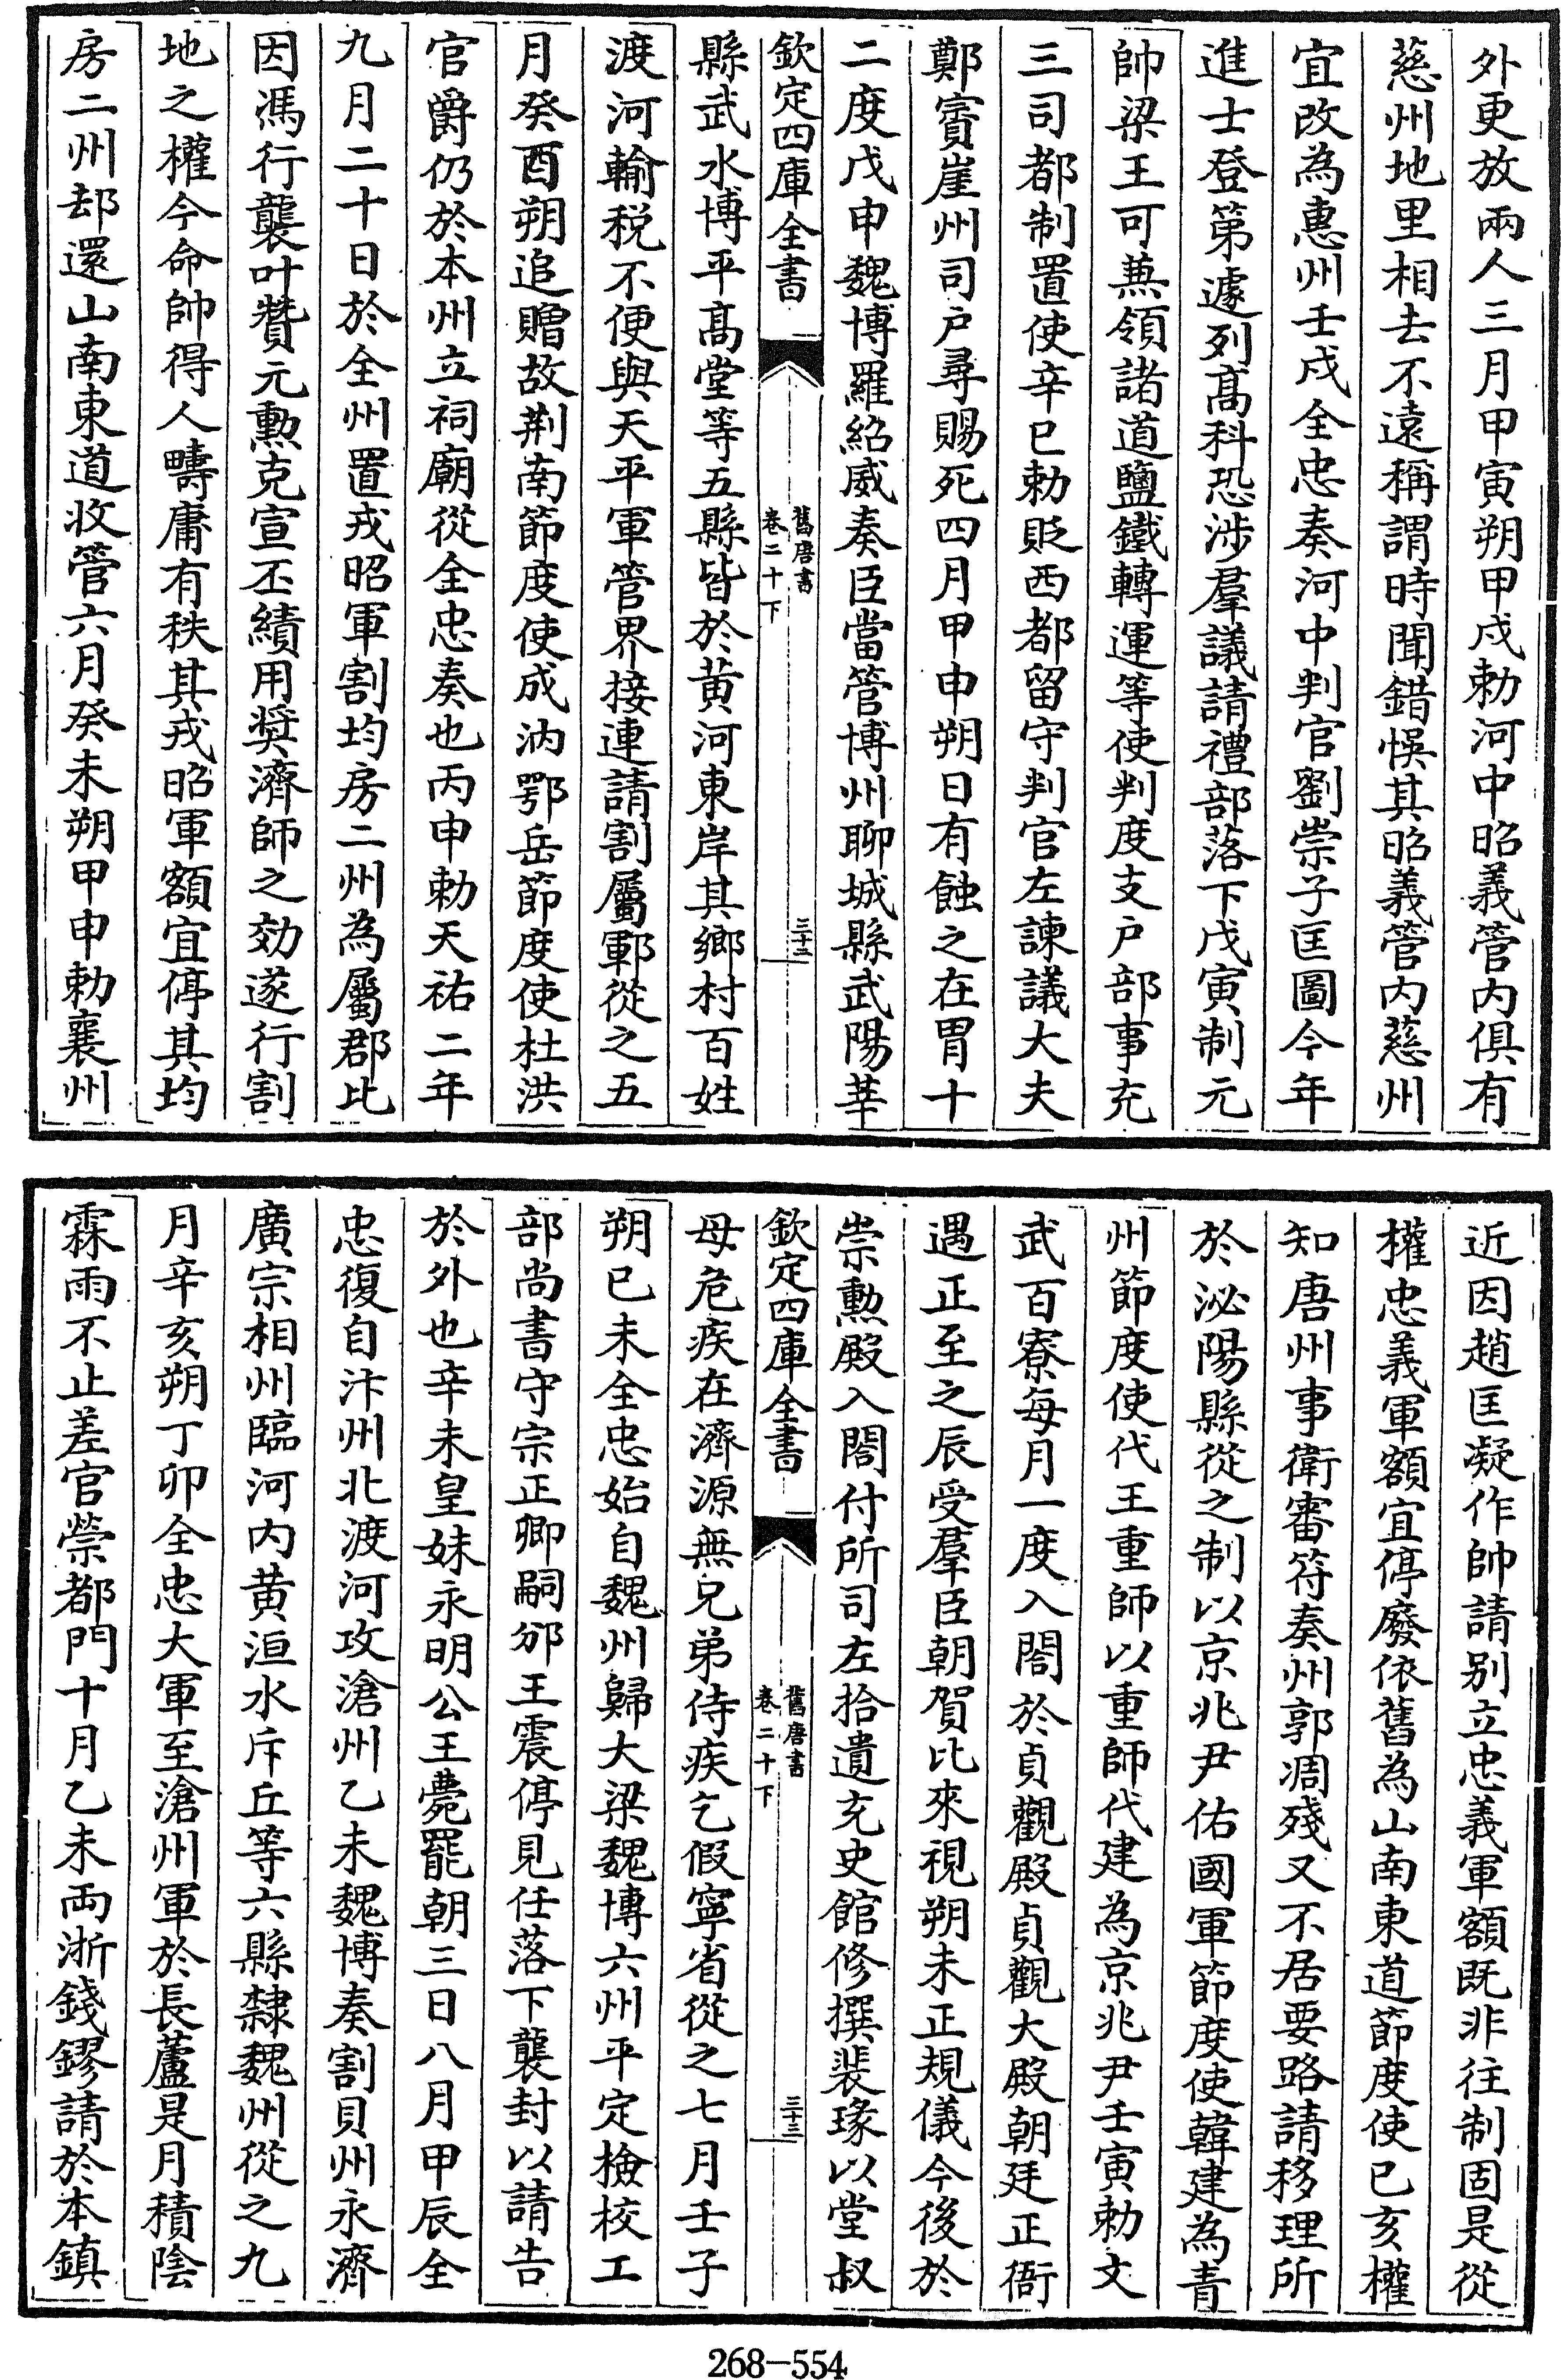 外更放兩人三月甲寅朔甲戌勅河中昭義管内俱有
慈州地里相去不遠稱謂時聞錯悞其昭義管内慈州
宜改為惠州壬戌全忠奏河中判官劉崇子匡圖今年
進士登第遽列髙科恐涉羣議請禮部落下戊寅制元
帥梁王可兼領諸道鹽鐵轉運等使判度支户部事充
三司都制置使辛巳勅貶西都留守判官左諫議大夫
鄭賨崖州司户尋賜死四月甲申朔日有蝕之在胃十
二度戊申魏博羅紹威奏臣當管博州聊城縣武陽莘
欽定四庫全書
舊唐書
卷二十下
三十二
縣武水博平髙堂等五縣皆於黄河東岸其鄉村百姓
渡河輸税不便與天平軍管界接連請割屬鄆從之五
月癸酉朔追贈故荆南節度使成汭鄂岳節度使杜洪
官爵仍於本州立祠廟從全忠奏也丙申勅天祐二年
九月二十日於全州置戎昭軍割均房二州為屬郡比
因馮行襲叶贊元勲克宣丕績用奬濟師之効遂行割
地之權今命帥得人疇庸有秩其戎昭軍額宜停其均
房二州却還山南東道收管六月癸未朔甲申勅襄州
近因趙匡凝作帥請别立忠義軍額既非往制固是從
權忠義軍額宜停廢依舊為山南東道節度使已亥權
知唐州事衛審符奏州郭凋殘又不居要路請移理所
於泌陽縣從之制以京兆尹佑國軍節度使韓建為青
州節度使代王重師以重師代建為京兆尹壬寅勅文
武百寮每月一度入閤於貞觀殿貞觀大殿朝廷正衙
遇正至之辰受羣臣朝賀比來視朔未正規儀今後於
崇勲殿入閤付所司左拾遺充史館修撰裴瑑以堂叔
欽定四庫全書
舊唐書
卷二十下
三十三
母危疾在濟源無兄弟侍疾乞假寧省從之七月壬子
朔已未全忠始自魏州歸大梁魏博六州平定檢校工
部尚書守宗正卿嗣邠王震停見任落下襲封以請告
於外也辛未皇妹永明公王薨罷朝三日八月甲辰全
忠復自汴州北渡河攻滄州乙未魏博奏割貝州永濟
廣宗相州臨河内黄洹水斥丘等六縣隸魏州從之九
月辛亥朔丁卯全忠大軍至滄州軍於長蘆是月積陰
霖雨不止差官禜都門十月乙未兩浙錢鏐請於本鎮
268-554